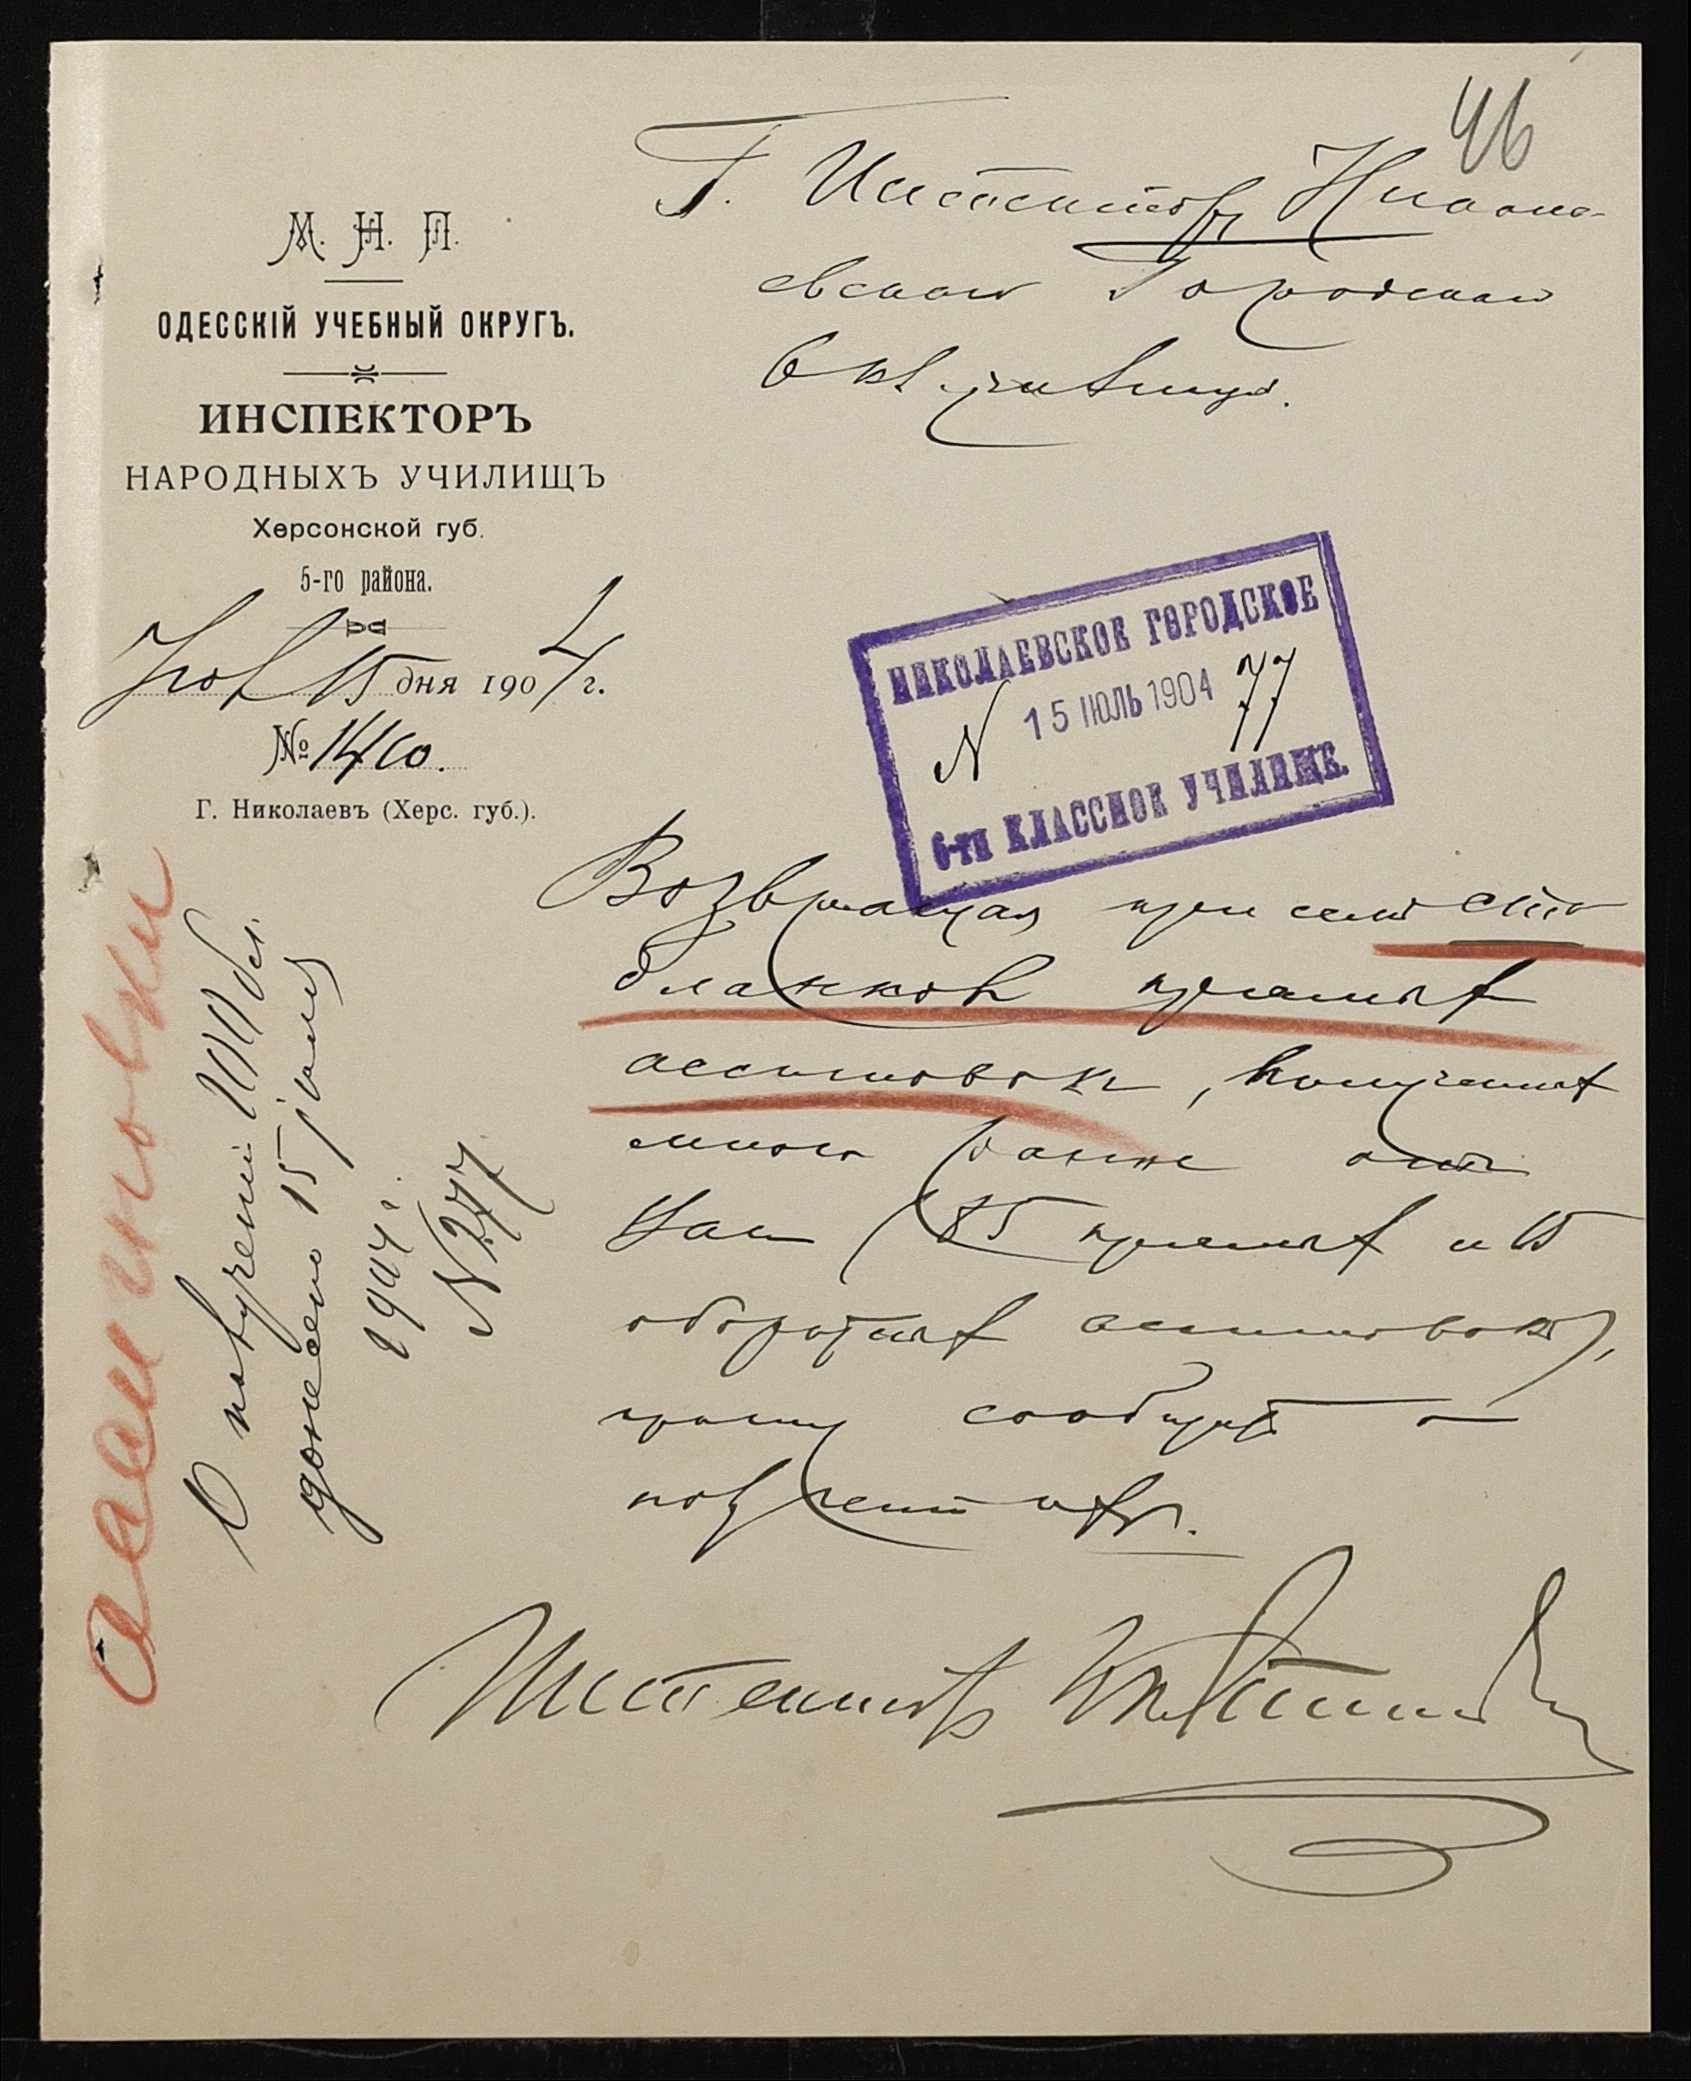 46
Г. Инспектору Никола-
евскаго Городского
6 кл. училища.
М. Н. П.
ОДЕССКІЙ УЧЕБНЫЙ ОКРУГЪ.
ИНСПЕКТОРЪ
НАРОДНЫХЪ УЧИЛИЩЪ
Херсонской губ.
5-го района.
Іюля 15 дня 1904 г.
№ 1460.
Г. Николаевъ (Херс. губ.).
НИКОЛАЕВСКОЕ ГОРОДСКОЕ
N 15 ІЮЛЬ 1904 77
6-ТИ КЛАССНОЕ УЧИЛИЩЕ.
Возвращая при семъ сто
бланковъ прямыхъ
ассигновокъ, полученныхъ
мною ранѣе отъ
Вас (85 прямыхъ и 15
оборотныхъ ассигновокъ),
прошу сообщить о
полученіи ихъ.
Инспекторъ
ассигновки
О полученіи
донесено 15 іюля
1904 г.
N 277